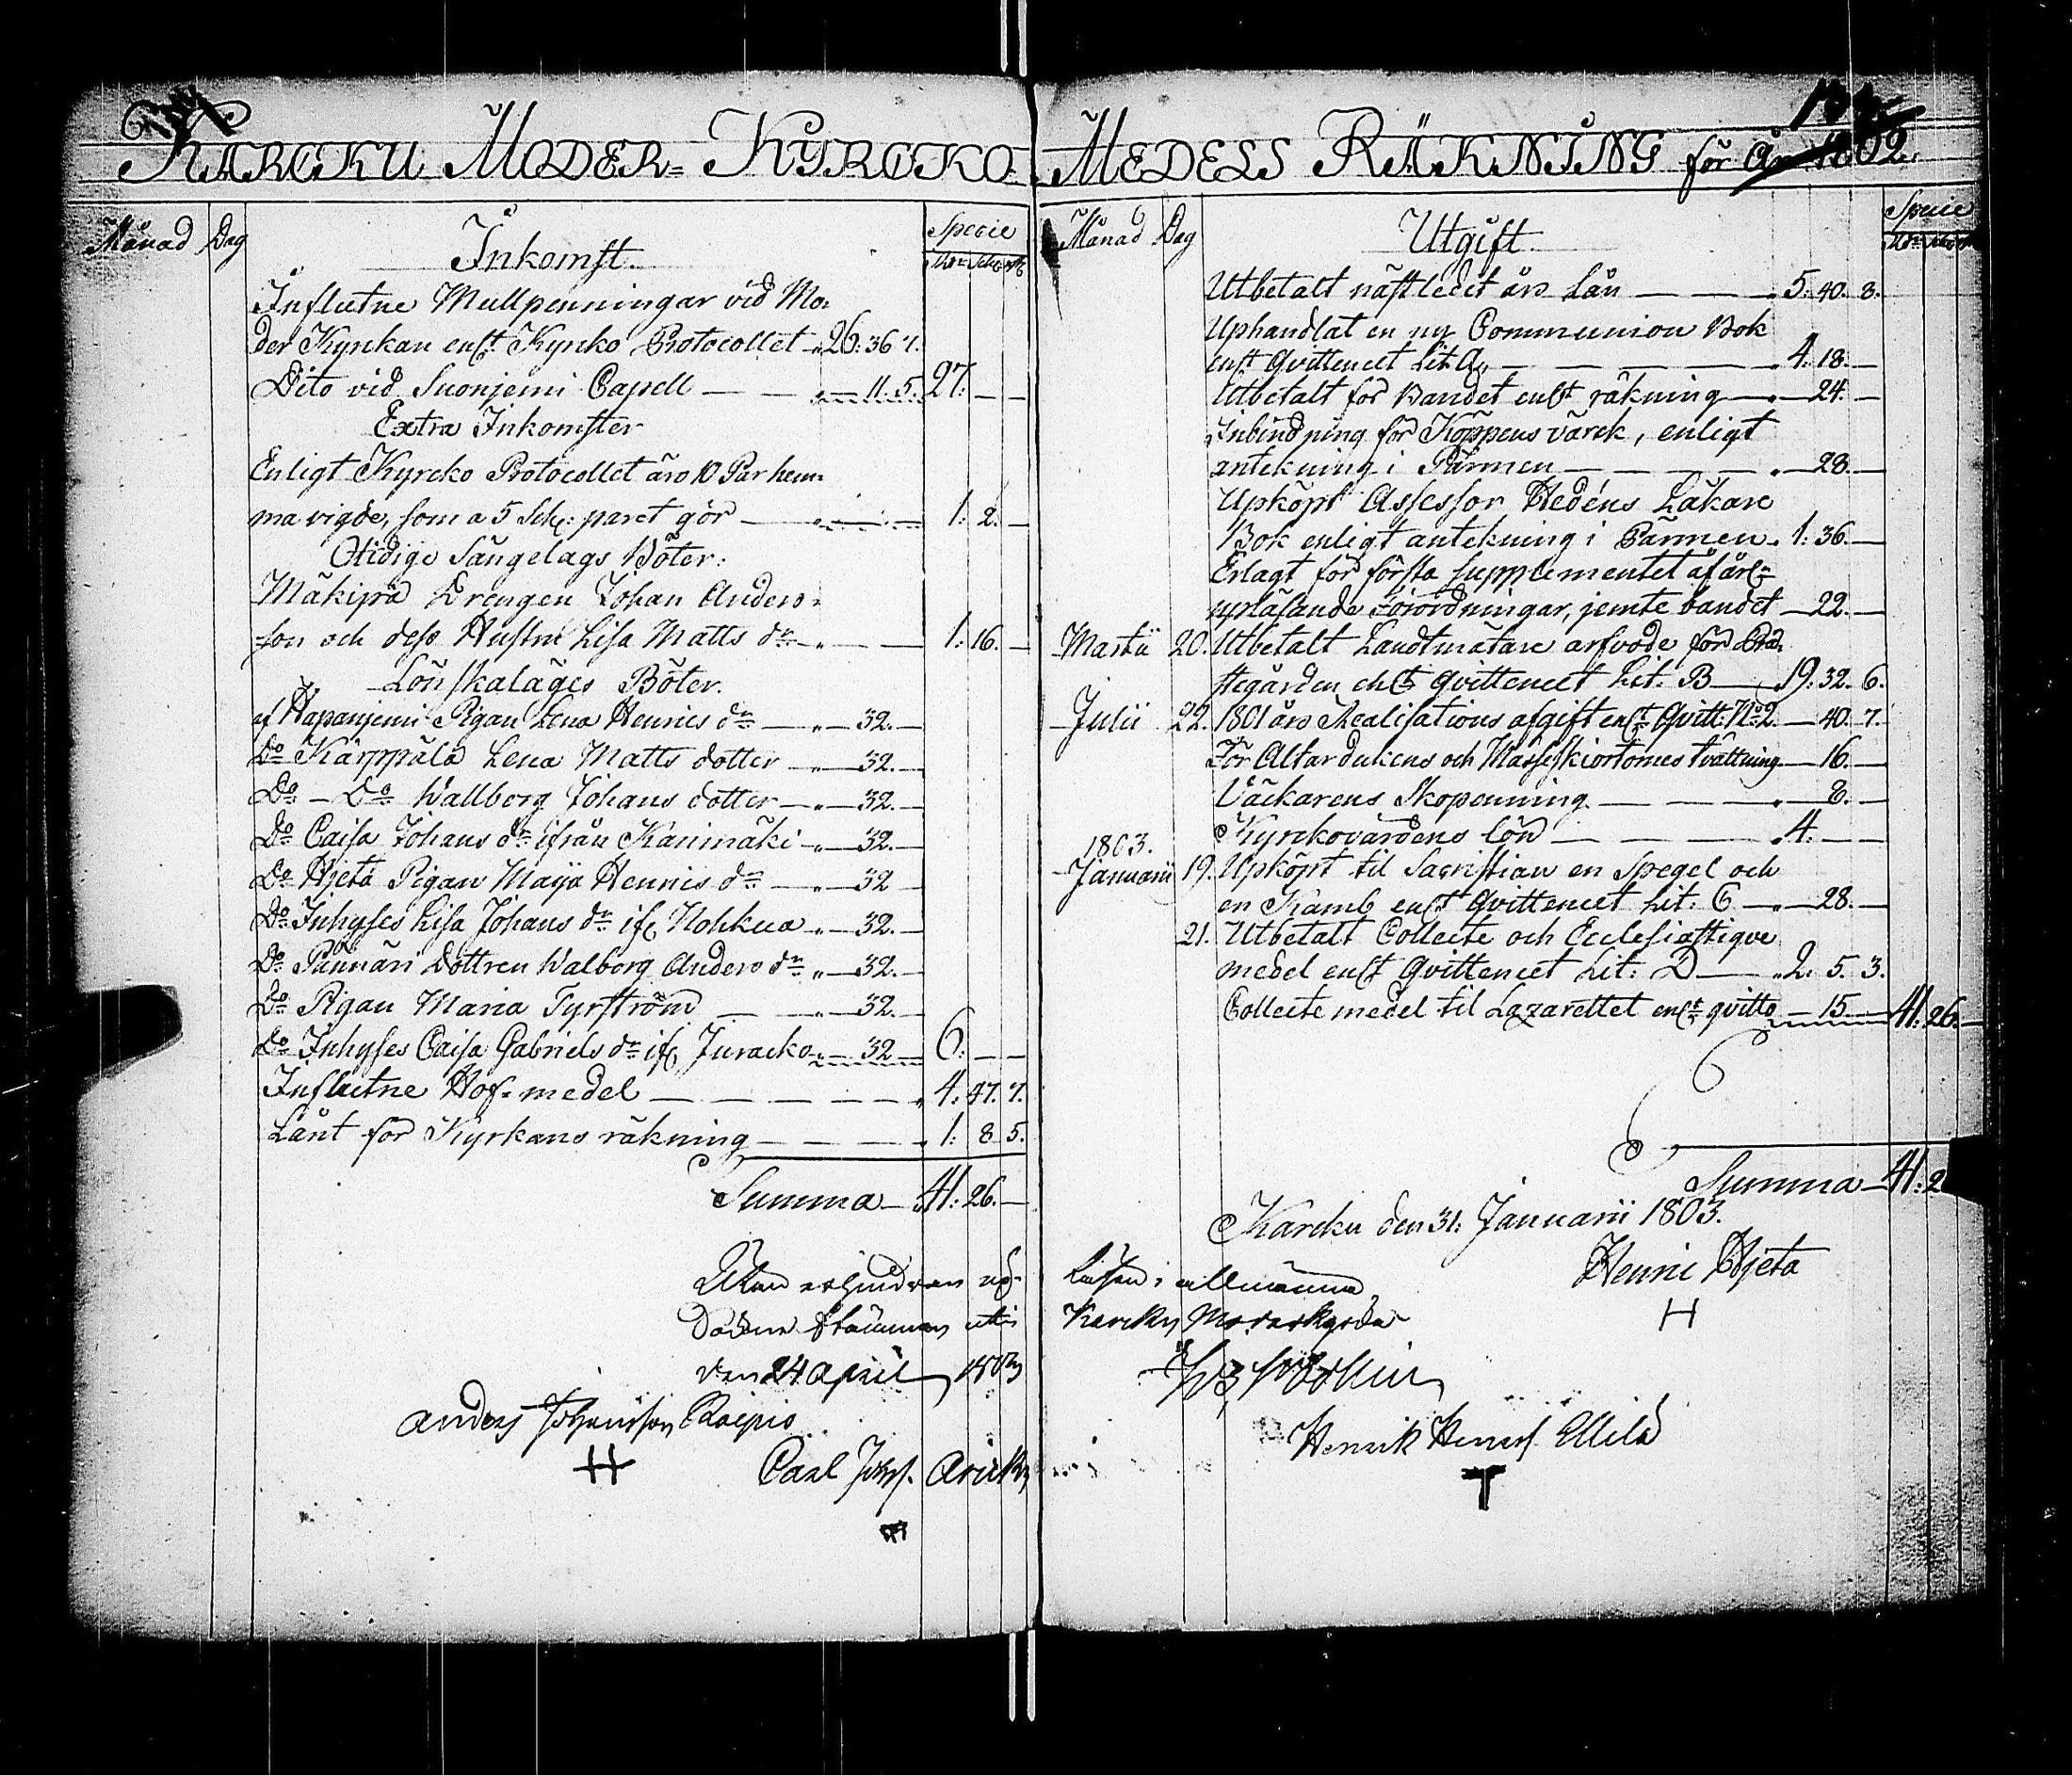 KARCKU MODER= KYRCKO
Månad Dag Inkomst. Specie
Rdr Sch. rst.
Influtne Mullpenningar vid Mo=
der Kyrkan enl:t Kyrko Protocollet 26: 36 7.
Dito vid Suonjemi Capell — — 11. 5. 27. — —
Extra Inkomster
Enligt Kyrcko Protocollet äro 10 Par hem=
ma vigde, som a 5 Sch: paret gör — 1: 2. —
Otidige Sängelags Böter:
Mäkipä Drengen Johan Anders=
son och dess Hustru Lisa Matts dr. — 1: 16. —
Lönskalägers Böter.
af Hapanjemi Pigan Lena Henrics dr — 32. —
Do Kärppälä Lena Matts dotter — 32. —
Do — Do Wallborg Johans dotter — 32. —
Do Caisa Johans dr ifrån Karimäki — 32. —
Do Hjetä Pigan Maija Henrics dr — 32 —
Do Inhyses Lisa Johans dr if. Nohkua — 32. —
Do Pännäri Dottren Walborg Anders dr — 32. —
Do Pigan Maria Fyrström — 32. —
Do Inhyses Caisa Gabriels dr if. Juracko — 32 — 6: — —
Influtne Hof=medel — — — — 4: 47. 7.
Lånt för Kyrkans räkning — — — 1: 8 5.
Summa — 41: 26. —
Utan
den 24 April 1803
Anders Johansson Raipio
Carl Johss.
MEDELS RÄKNING för År 1802.
Månad Dag Utgift. Specie
Utbetalt nästledet års Lån — — 5: 40. 8.
Uphandlat en ny Communion Bok
enl:t qvittencet Lit. A. — — 4: 18. —
Utbetalt för Bandet enl:t räkning — 24. —
Inbindning förKöppens värck, enligt
antekning i Pärmen — — — 28. —
Upköpt Assessor Hedéns Läkare
Bok enligt antekning i Pärmen. 1: 36. —
Erlagt för första supplementet af årl:
uplåsande Förordningar, jemte bandet — 22. —
Martii 20. Utbetalt Landtmätare arfvode för Prä=
stegården enl:t qvittencet Lit. B — 19: 32. 6.
Julii 22. 1801 års Realisations afgift enl:t Qvitt: No 2 — 40. 7.
För Altar dukens och Mässeskiortornes tvättning — 16. —
Väckarens Skopenning — — 8. —
Kyrckovärdens lön — — 4. — —
1803.
Januarii 19. Upköpt til Sacristian en Spegel och
en Kamb enl:t qvittencet Lit. C — 28. —
21. Utbetalt Collecte och Ecclesiastique
medel enl:t qvittencet Lit: D — 2. 5. 3.
Collecte medel til Lazarettet enl:t qvitto — 15. — 41: 26. —
Summa — 41: 2
Karcku den 31: Januarii 1803.
Henric Hjeta
H
i allmänna
Karcku
Henrik Henrs.